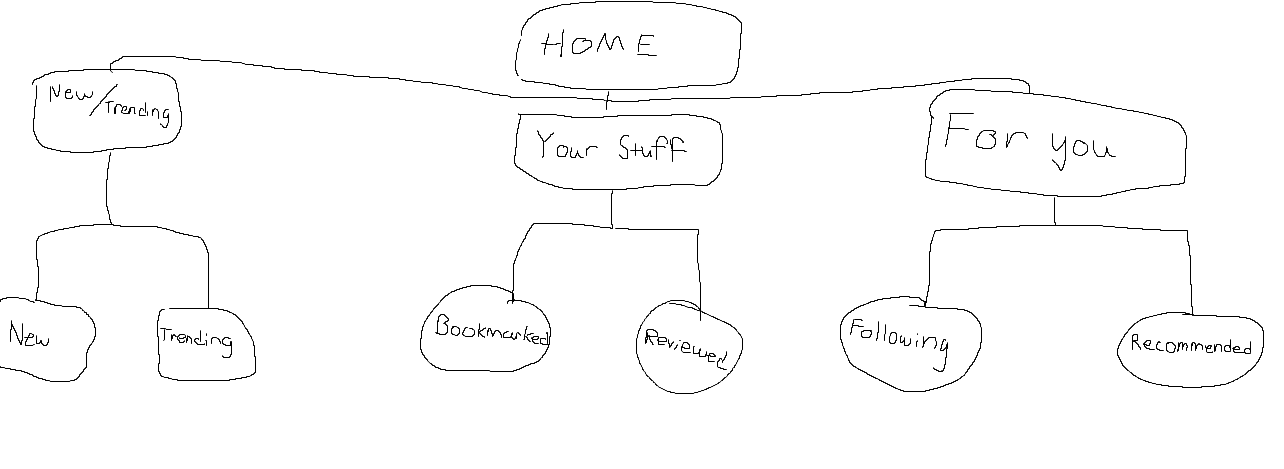 HOME
New/Trending
Your Stuff
For you
New
Trending
Bookmarked
Reviewed
Following
Recommended